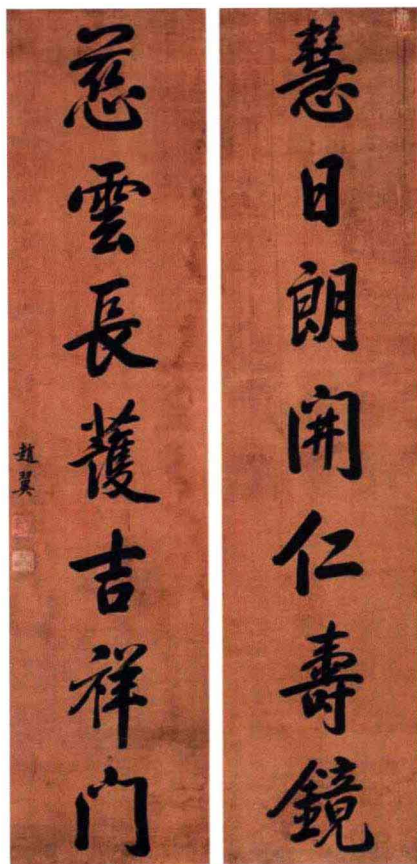 慧日朗開仁壽鏡
慈雲長護吉祥門
趙翼